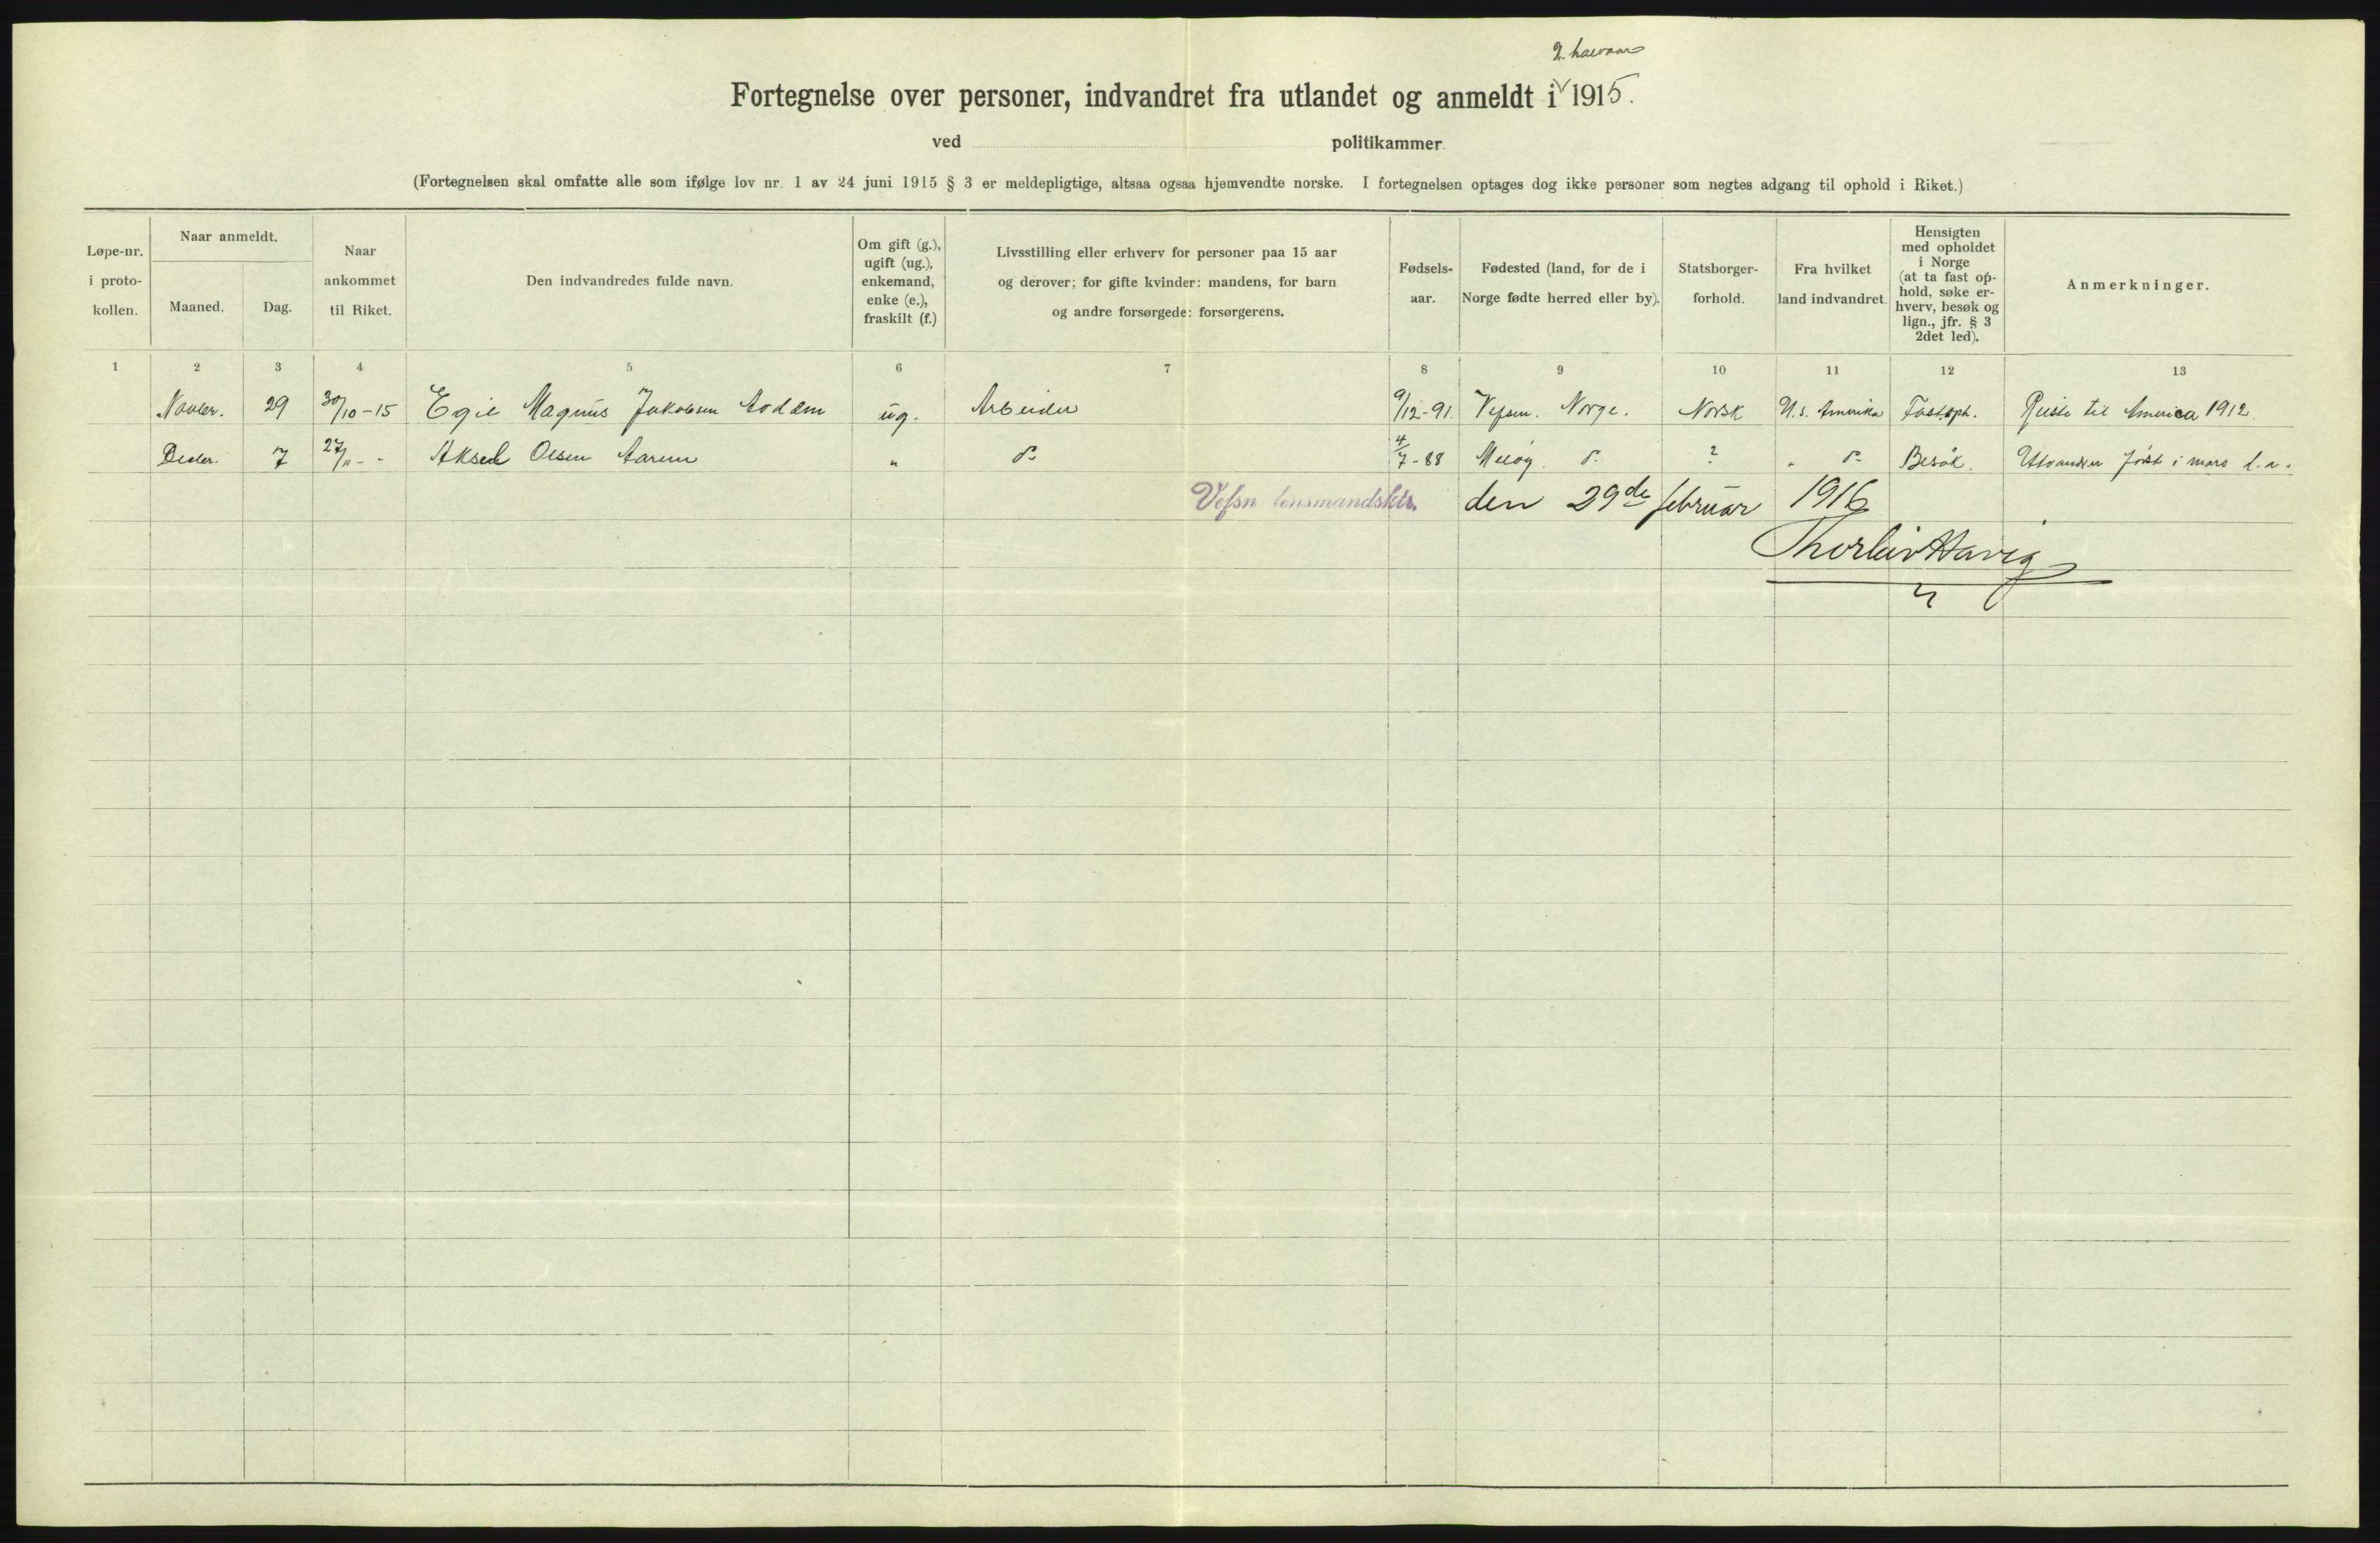 2. halvaar
Fortegnelse over personer, indvandret fra utlandet og anmeldt i 1915.
ved politikammer
(Fortegnelsen skal omfatte alle som ifølge lov nr. 1 av 24 juni 1915 § 3 er meldepligtige, altsaa ogsaa hjemvendte norske. I fortegnelsen optages dog ikke personer som negtes adgang til ophold i Riket.)
Løpe-nr. i proto-kollen.
Naar anmeldt.
Maaned.
Dag.
Naar ankommet til Riket.
Den indvandredes fulde navn.
Om gift (g.), ugift (ug.), enkemand, enke (e.), fraskilt (f.)
Livsstilling eller erhverv for personer paa 15 aar og derover; for gifte kvinder: mandens, for barn og andre forsørgede: forsørgerens.
Fødsels-aar.
Fødested (land, for de i Norge fødte herred eller by).
Statsborger-forhold.
Fra hvilket land indvandret.
Hensigten med opholdet i Norge (at ta fast op-hold, søke er-hverv, besøk og lign., jfr. § 3 2det led).
Anmerkninger.
1 2 3 4 5 6 7 8 9 10 11 12 13
Novbr. 29 30/10-15 Egil Magnus Jakobsen ug. Arbeider 9/12-91. Vefsen. Norge. Norsk U.S. Amerika Fast oph. Reiste til America 1912.
Desbr. 7 27/11 - - Aksel Olsen " do 4/7-88 Meløy. do ? " do Besøk. Utvandrer først i mars d.a.
Vefsn lensmandsktr. den 29de februar 1916
Thorleiv Havig